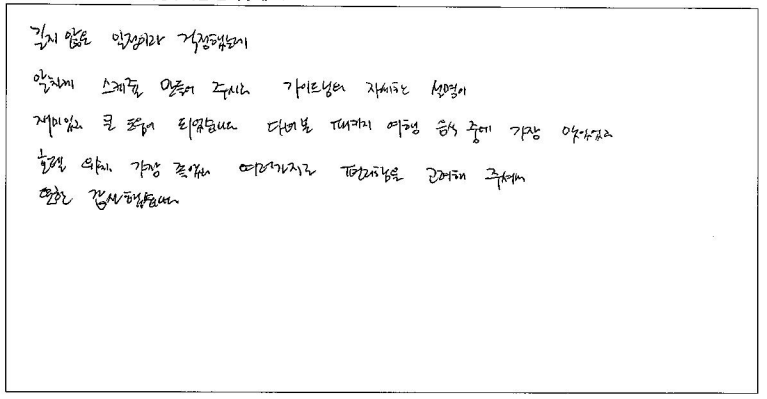 길지 않은 일정이라 걱정했는데
알차게 스케줄 만들어 주시고 가이드님의 자세한 설명이
재미있고 큰 도움이 되었습니다 다녀본 패키지 여행 음식 중에 가장 맛있었고
호텔 위치 가장 좋았고 여러가지로 편리함을 고려해 주셔서
또한 감사했습니다